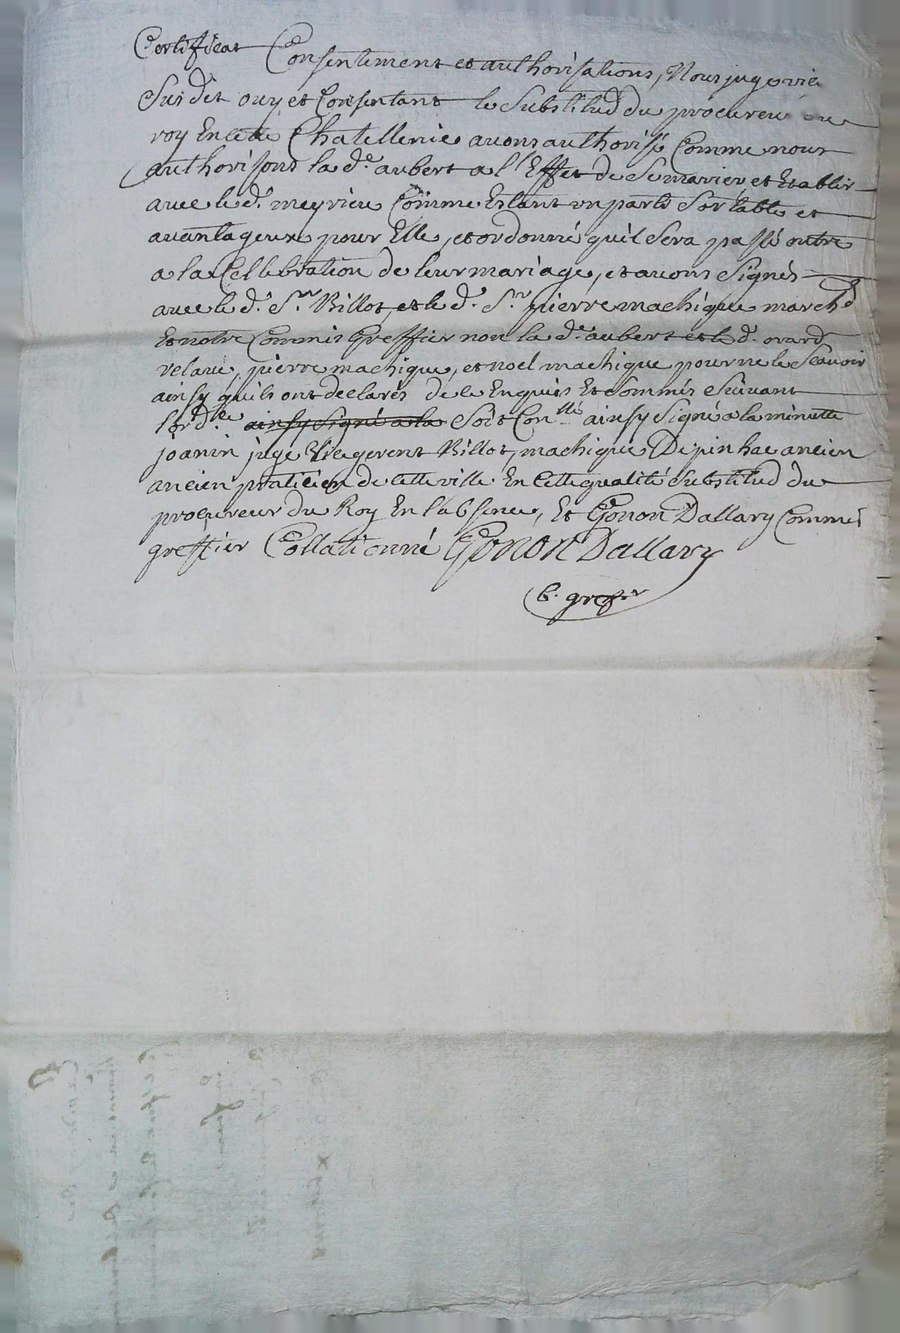 Certificat Consentement et authorisations, Nous juge vice
Susdit ouy et Consentant le Substitud du procureur du
roy En cette Chatellenie avons authorisé Comme nous
authorisons la d.e aubert a l'Effet de Se marier et Etablir
avec le d.t meyrieu Comme Estant un parti Sortable et
avantageux pour Elle, et ordonné quil Sera passé outre
a la Cellebration de leur mariage, et avons Signés
avec le d.t S.r Billot, et le d.t S.r pierre machique march.d
Et notre Commis Greffier non la d.e aubert et le d.t
pierre machique, et noel machique pour ne le Scavoir
ainsy quils ont declarés de ce Enquis Et Sommés Suivant
l'ord.ce ainsy Signé a la Soit Con.llé ainsy Signé a la minutte
joanin juge Vicegerent Billot, machique Depinhac ancien
ancien praticien de cette ville En cette qualité Substitud du
procureur du Roy En l'absence, Et Gonon Dallary Commis
greffier Collationné Gonon Dallary
C. greffier